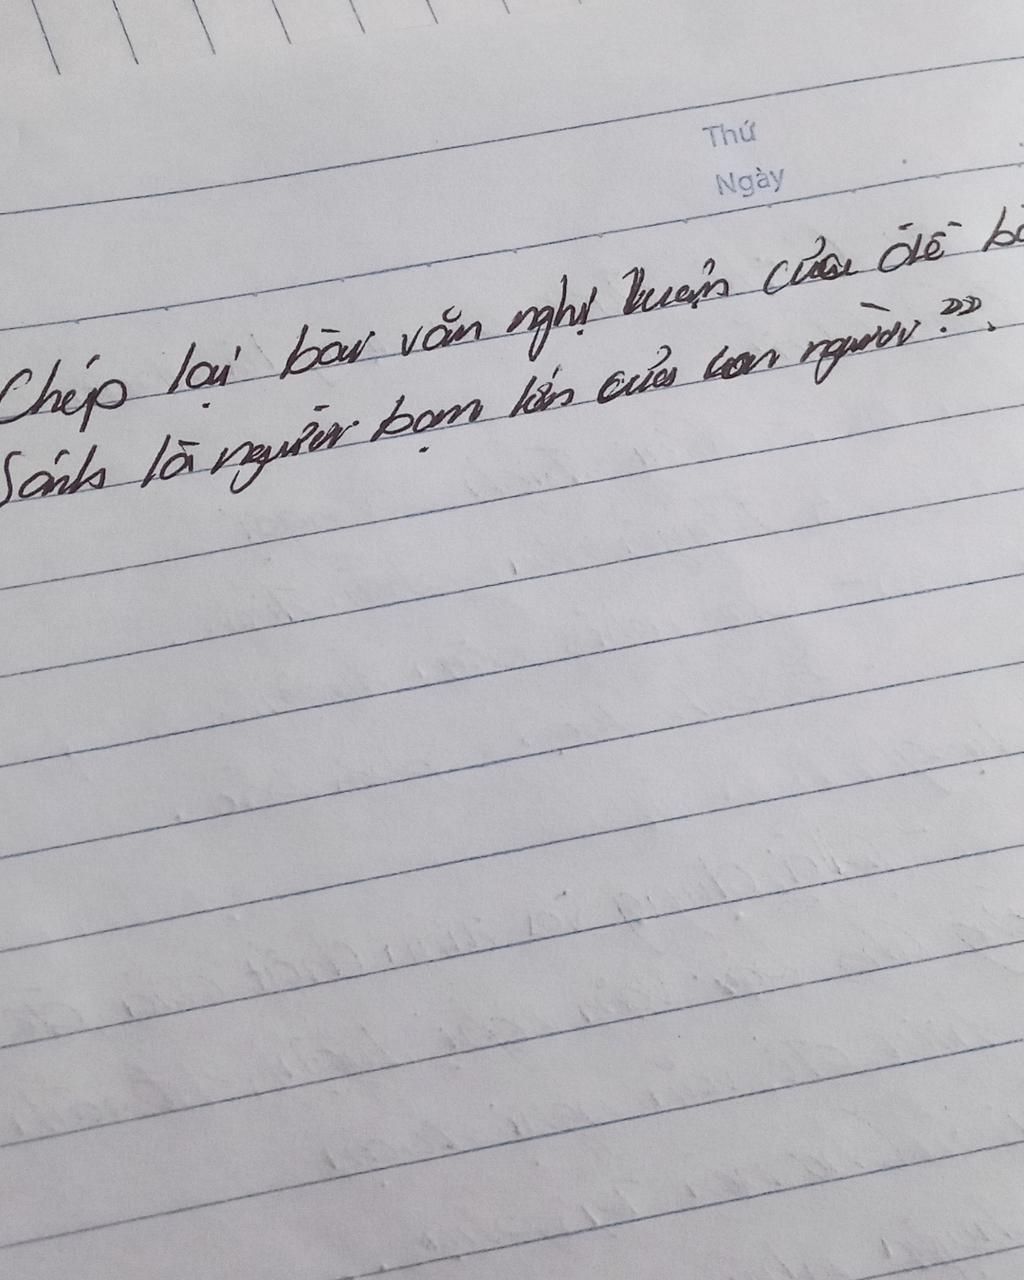 Thứ
Ngày
Chép lại bài văn nghị luận của đề
Sách là người bạn lớn của con người??.